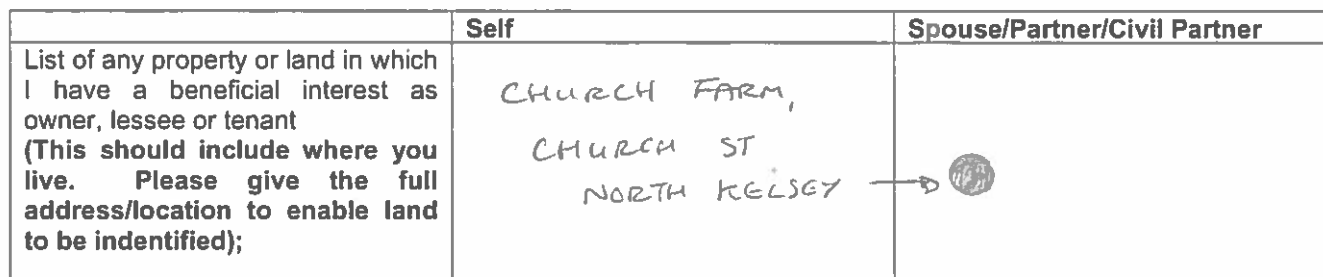 Self
Spouse/Partner/Civil Partner
List of any property or land in which
I have a beneficial interest as
owner, lessee or tenant
(This should include where you
live. Please give the full
address/location to enable land
to be indentified);
CHURCH FARM,
CHURCH ST
NORTH KELSEY